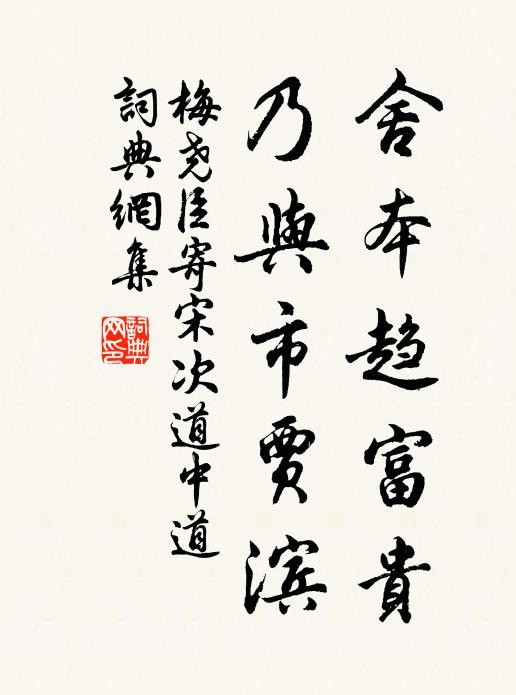 舍本趋富貴
乃與市賈滨
梅尧臣寄宋次道中道
詞典網集
詞典网印